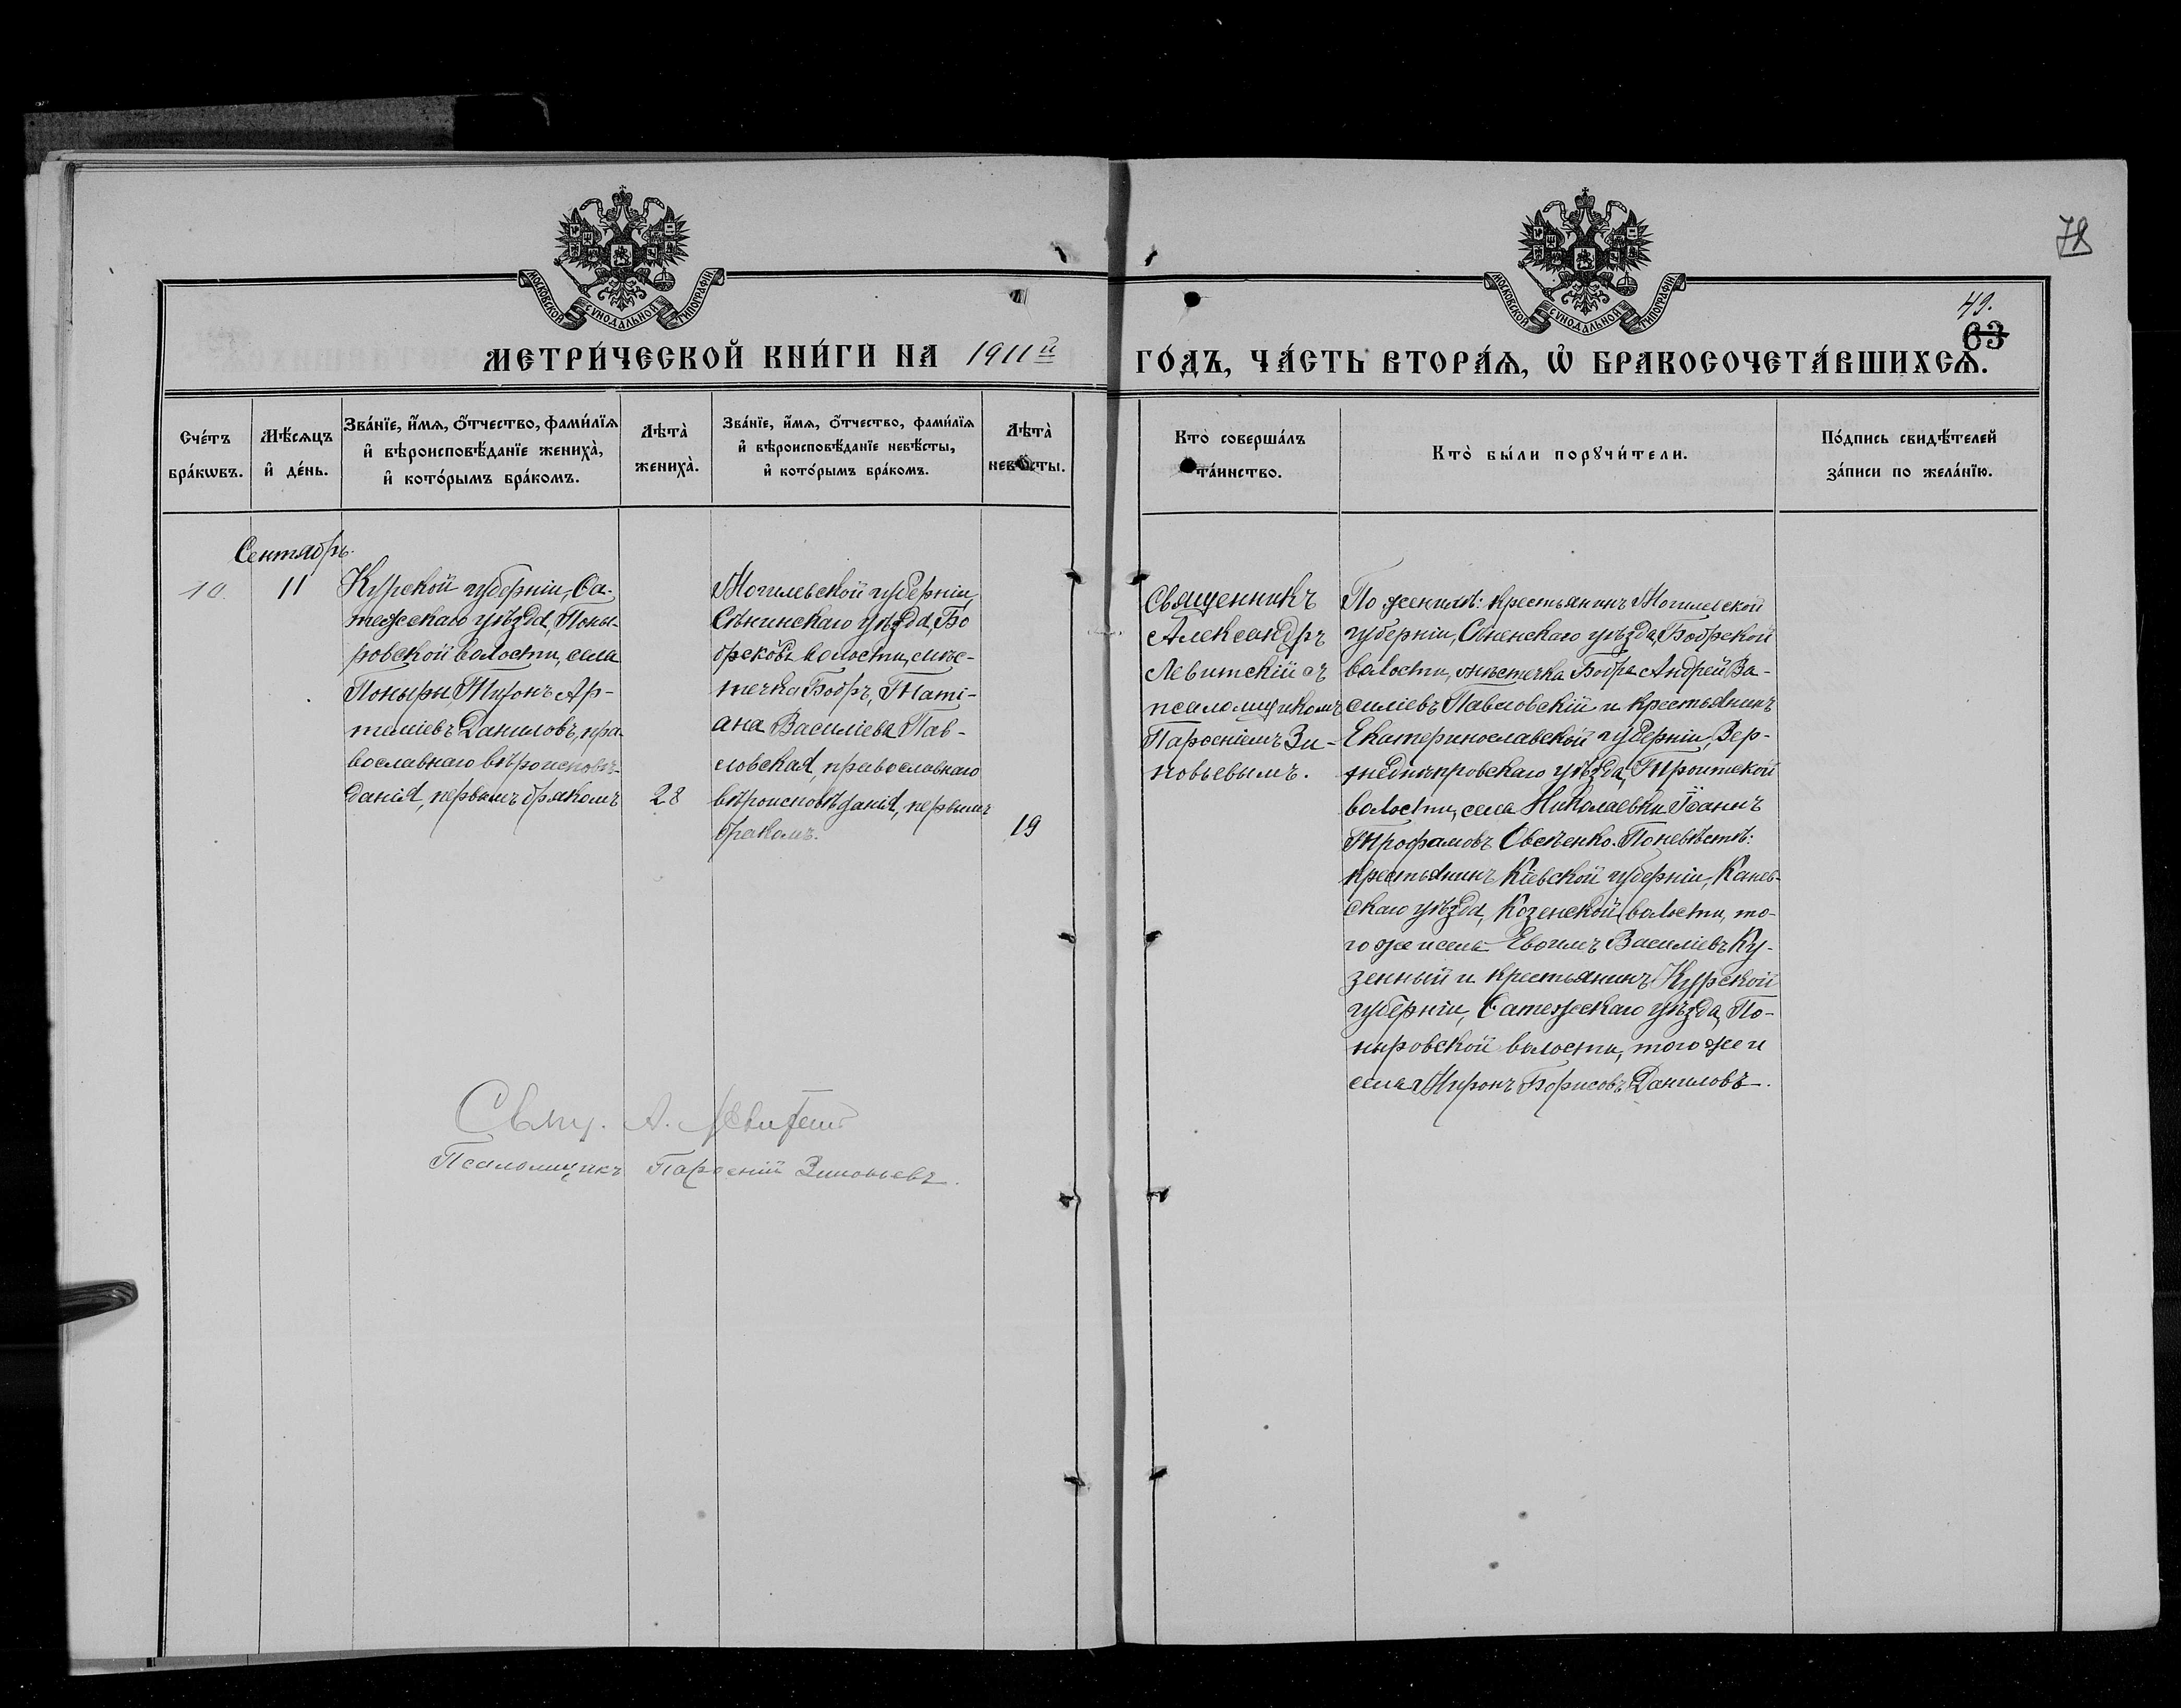 78
МОСКОВСКОЙ СѴНОДАЛЬНОЙ ТИПОГРАФІИ.
МОСКОВСКОЙ СѴНОДАЛЬНОЙ ТИПОГРАФІИ.
49.
63
МЕТРИ́ЧЕСКОЙ КНИ́ГИ НА 1911й
ГО́ДЪ, ЧА́СТЬ ВТОРА́Ѧ, Ѡ҆ БРАКОСОЧЕТА́ВШИХСѦ.
Сче́тъ
бра́кѡвъ.
Мѣ́сѧцъ
и҆ де́нь.
Зва́нїе, и҆́мѧ, ѻ҆́тчество, фами́лїѧ
и҆ вѣроисповѣ́данїе жениха̀,
и҆ кото́рымъ бра́комъ.
Лѣта̀
жениха̀.
Зва́нїе, и҆́мѧ, ѻ҆́тчество, фами́лїѧ
и҆ вѣроисповѣ́данїе невѣ́сты,
и҆ кото́рымъ бра́комъ.
Лѣта̀
невѣ́сты.
Кто̀ соверша́лъ
та́инство.
Кто̀ бы́ли порꙋчи́тели.
По́дпись свидѣ́телей
за́писи по жела́нїю.
Сентябрь.
10. 11
Курской губерніи, Фа-
тежскаго уѣзда, Поны-
ровской волости, села
Поныры, Тихонъ Ар-
теміевъ Даниловъ, пра-
вославнаго вѣроисповѣ-
данія, первымъ бракомъ
28
Могилевской губерніи,
Сѣнинскаго уѣзда, Бо
брской волости, мѣс-
течка Бобръ, Таті-
ана Василіева Пав-
ловская, православнаго
вѣроисповѣданія, первымъ
бракомъ.
19
Священникъ
Александръ
Левитскій съ
псаломщикомъ
Парѳеніемъ Зи-
новьевымъ.
По женихѣ: крестьянинъ Могилевской
губерніи, Сѣненскаго уѣзда, Бобрской
волости, мѣстечка Бобра Андрей Ва-
силіевъ Павловскій и крестьянинъ
Екатеринославской губерніи, Вер-
хнеднѣпровскаго уѣзда, Троитской
волости, села Николаевки Іоаннъ
Трофимовъ Овсѣенко. По невѣстѣ:
крестьянинъ Кіевской губерніи, Канев-
скаго уѣзда, Козенской волости, то-
го же и села Евѳимъ Василіевъ Ку-
зенный и крестьянинъ Курской
губерніи, Фатежскаго уѣзда, По-
ныровской волости, того же и
села Миронъ Борисовъ Даниловъ.
Свящ. А. Левитскій
Псаломщикъ Парѳеній Зиновьевъ.